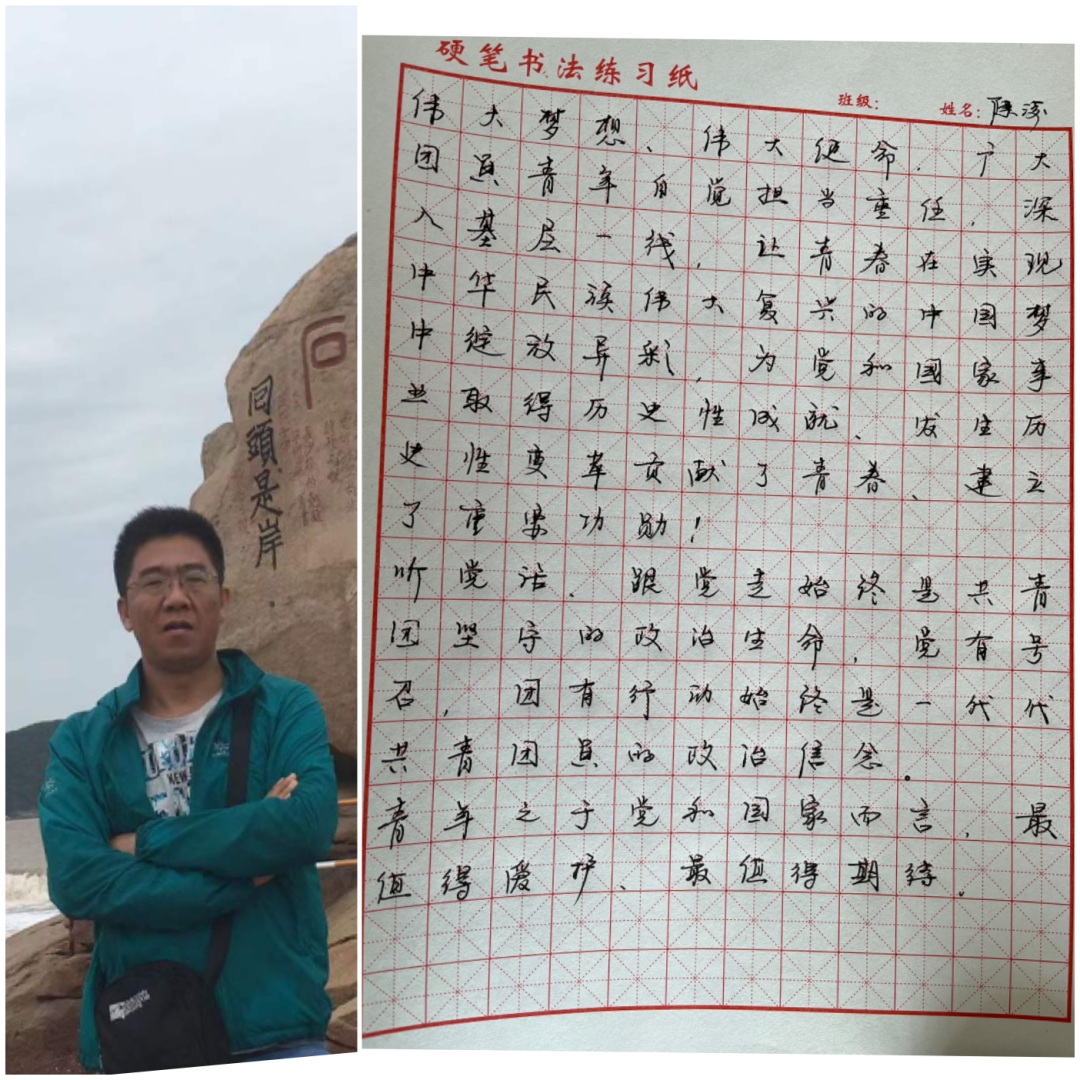 回頭是岸
NEW
硬笔书法练习纸
班级: 姓名: 陈涛
伟大梦想、伟大使命,广大
团员青年自觉担当重任,深
入基层一线,让青春在实现
中华民族伟大复兴的中国梦
中绽放异彩,为党和国家事
业取得历史性成就、发生历
史性变革贡献了青春、建立
了重要功勋!
听党话、跟党走始终是共青
团坚守的政治生命,党有号
召,团有行动始终是一代代
共青团员的政治信念。
青年之于党和国家而言,最
值得爱护、最值得期待。